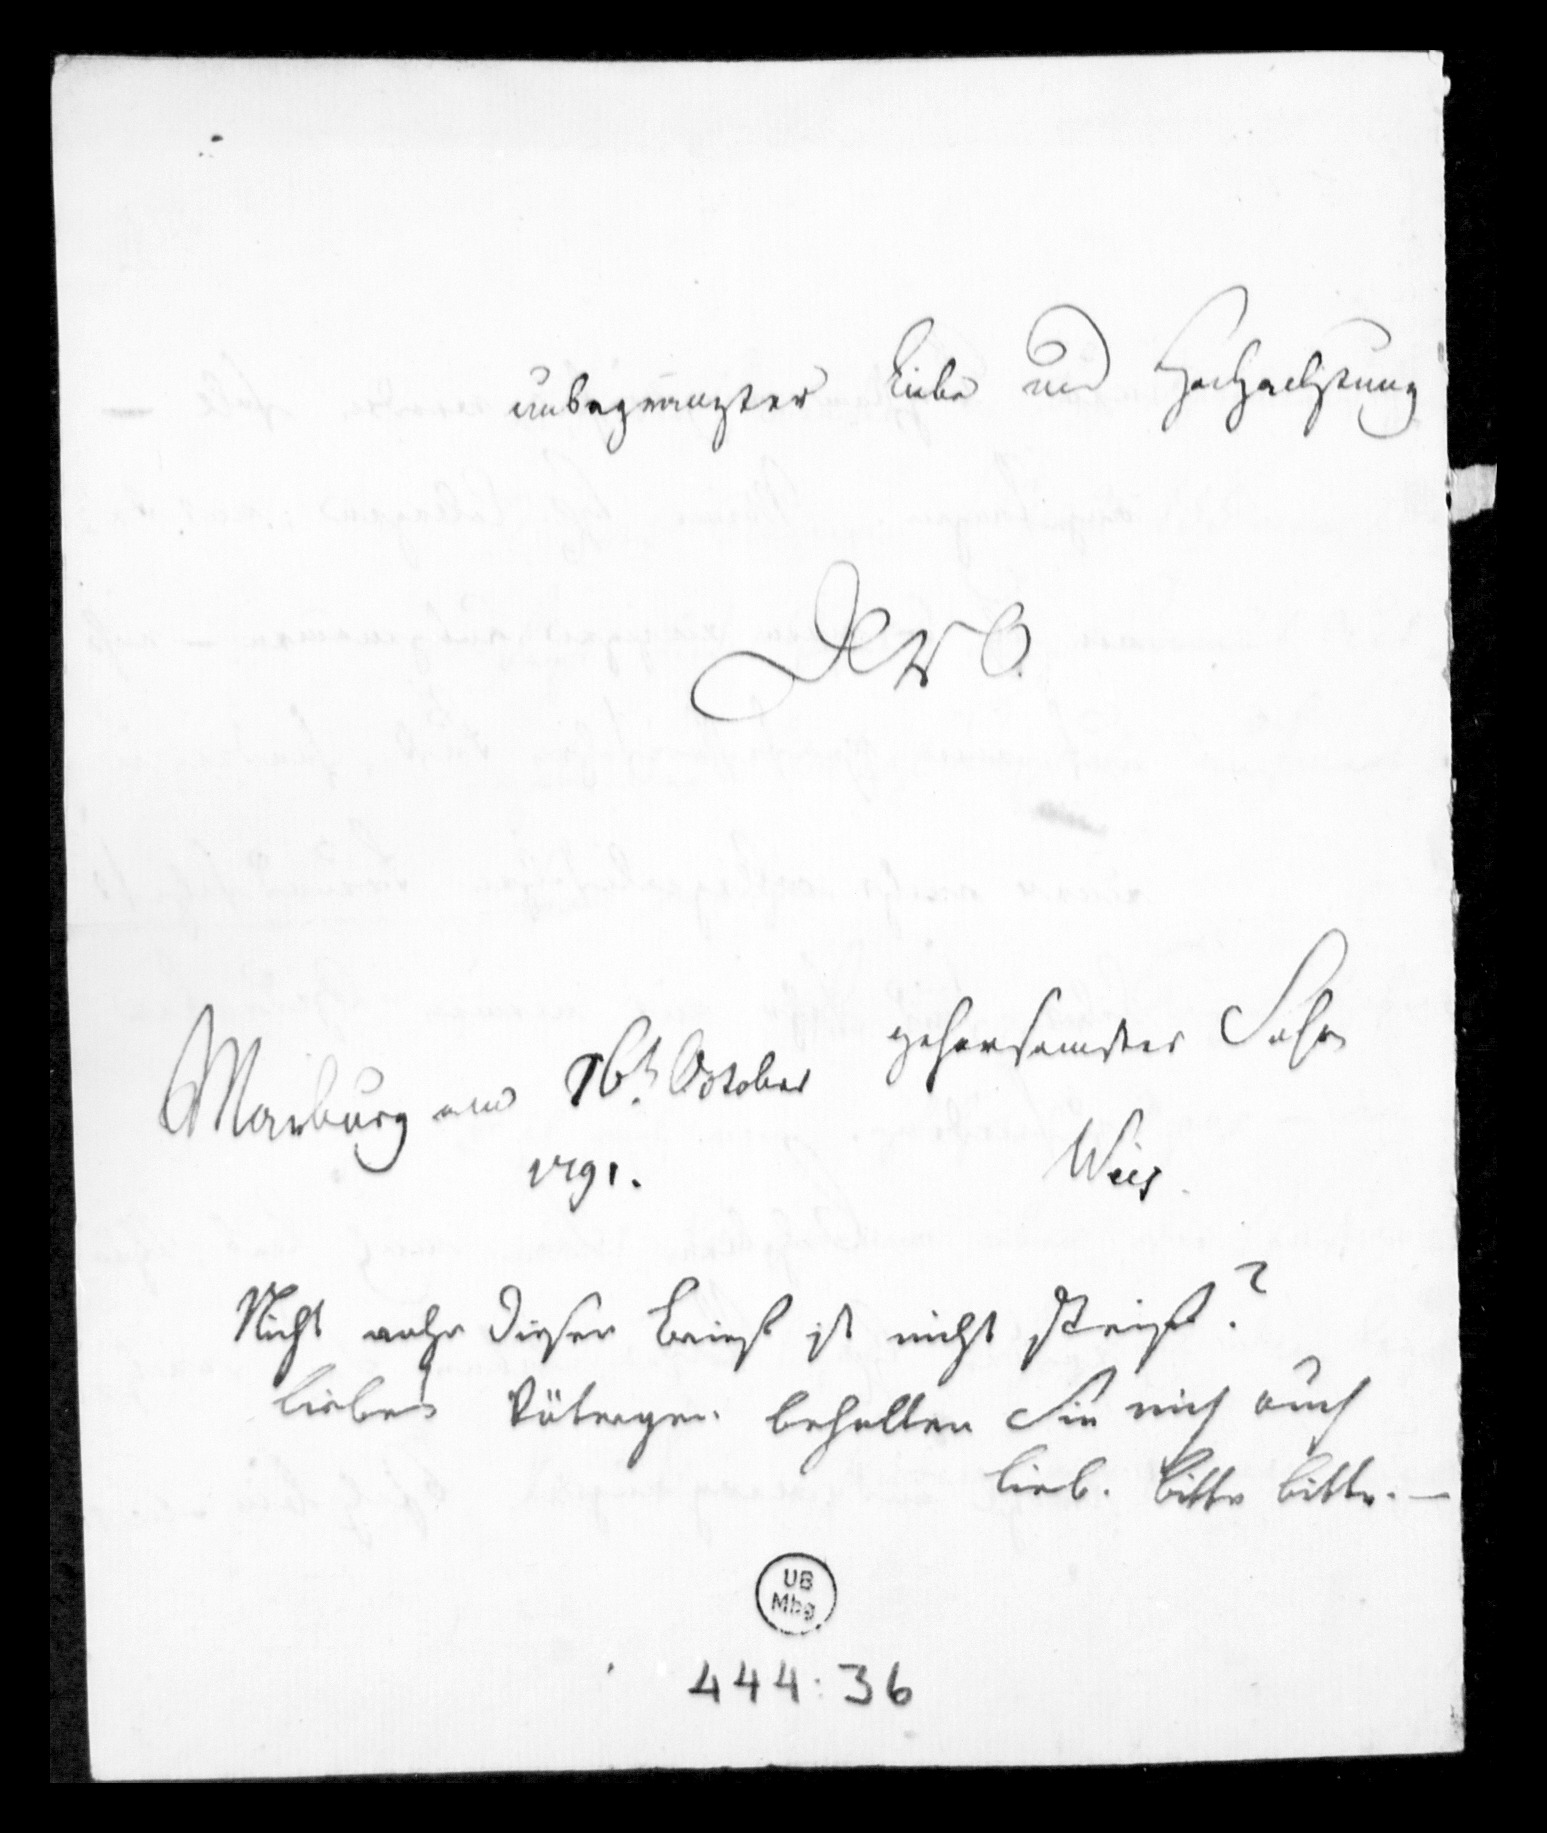 unbegranzter Liebe und Hochachtung
Dero
gehorsamster Sohn
Marburg am 16t. October
1791.
Weis.
Nicht wahr dieser Brief ist nicht steif?
liebes Väterchen behalten Sie mich auch
lieb. bitte bitte. —
UB
Mbg
444:36